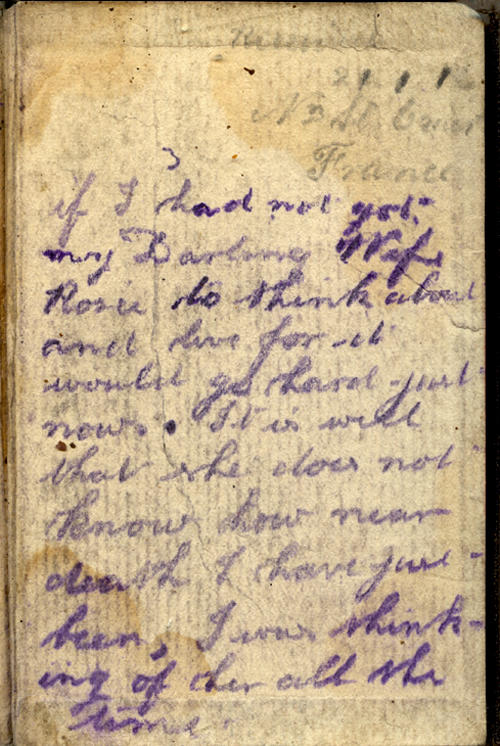 21 1 1
France
3
if I had not got
my Darling Wife
Rosie to think about
and live for it
would go hard just
now. It is well
that she does not
know how near
death I have just
been, I was think-
ing of her all the
time.